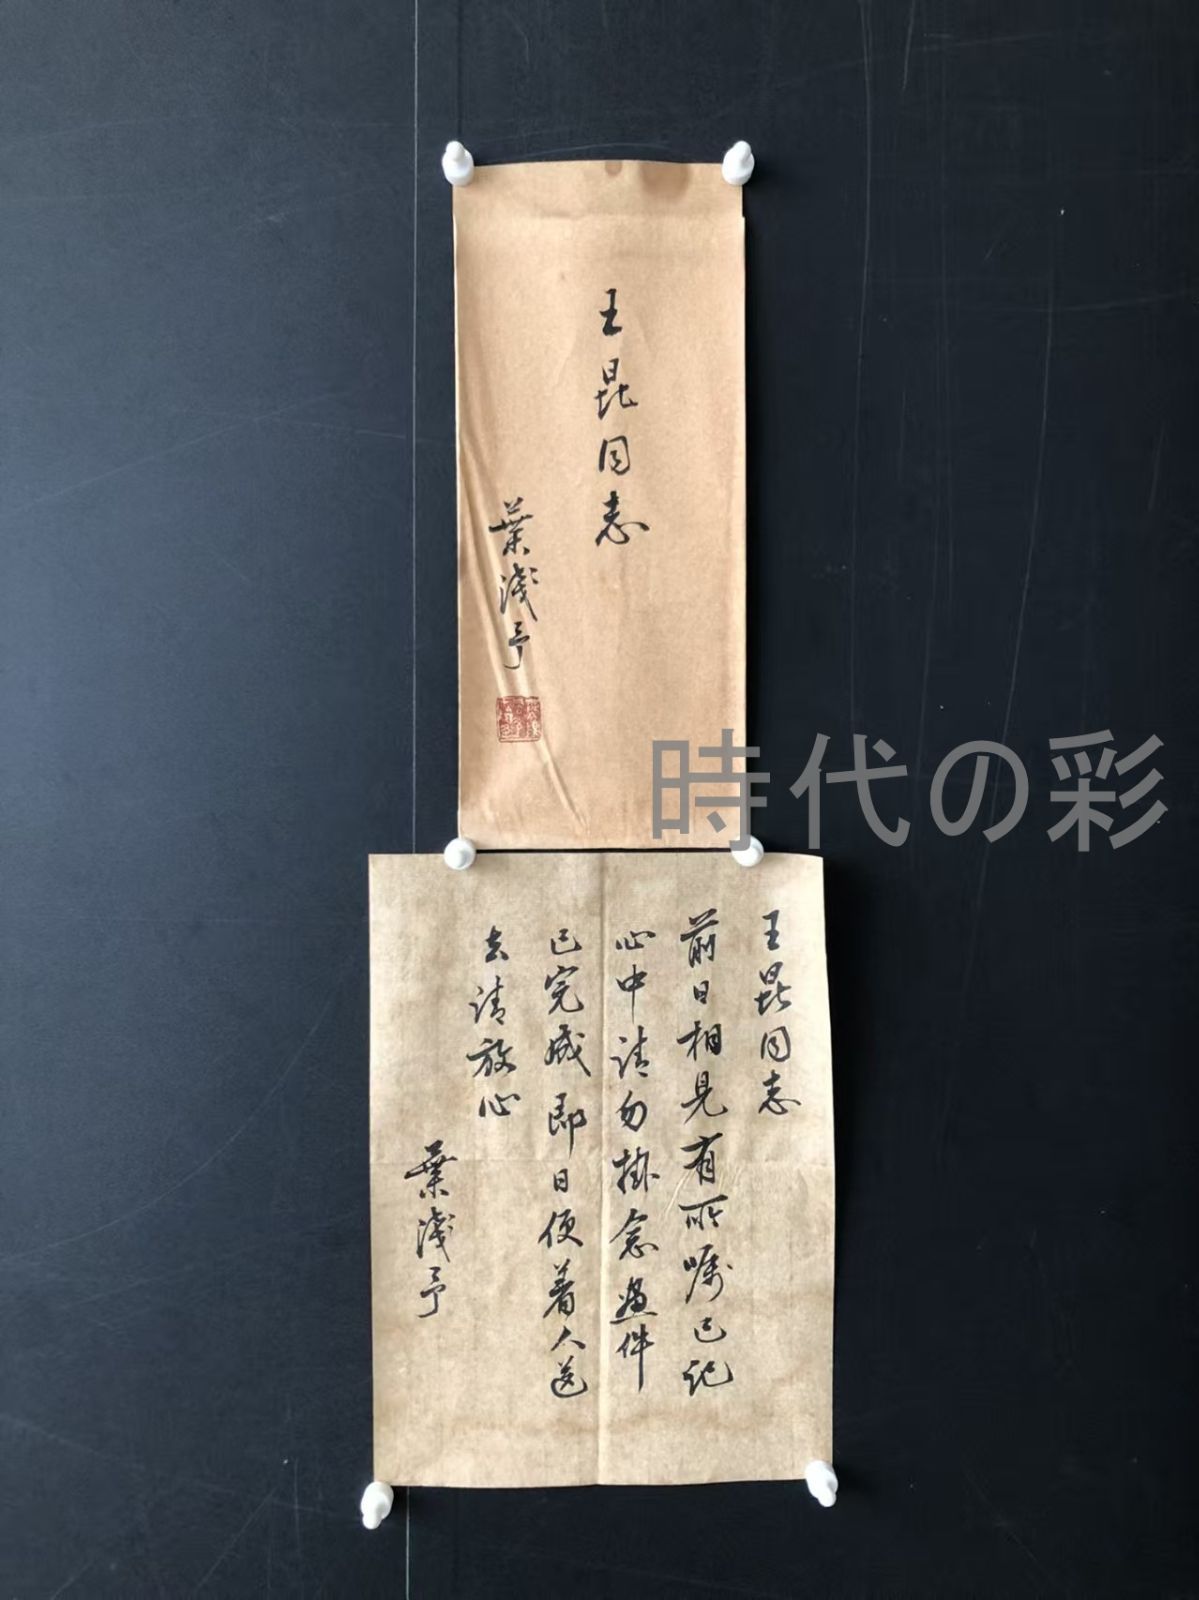 王昆同志
葉淺予
時代の彩
王昆同志
前日相見有所嘱已记
心中请勿掛念画件
已完成即日便着人送
去请放心
葉淺予